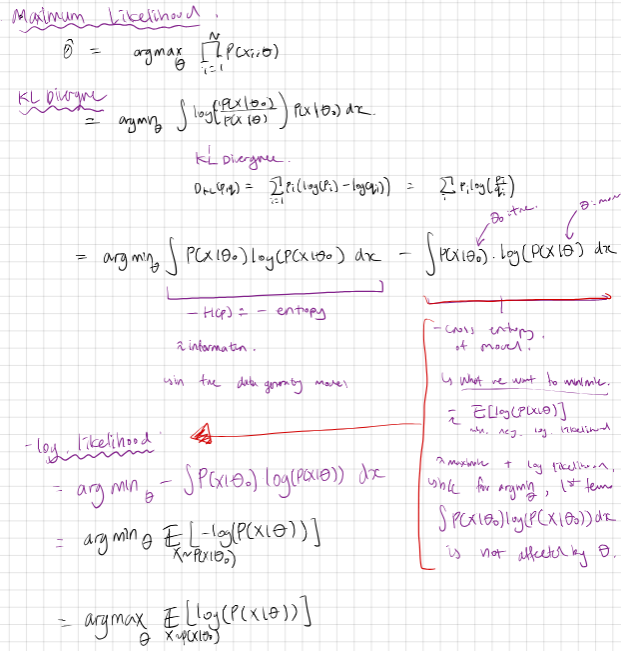 Maximum Likelihood.
θ̂ = argmax_θ ∏_{i=1}^{N} P(xi, θ)
KL Divergne
= argmin_θ ∫ log(P(x|θ₀)/P(x|θ)) P(x|θ₀) dx.
KL Divergnce.
D_KL(p,q) = Σ_{i=1} Pi(log(Pi) - log(qi)) = Σ_i Pi log(Pi/qi)
θ₀: true
= argmin_θ ∫ P(x|θ₀) log(P(x|θ₀)) dx - ∫ P(x|θ₀) · log(P(x|θ)) dx
- H(p) = - entropy
information.
in the data
- cross entropy
of model.
is what we want to minimise.
E[log(P(x|θ)]
neg. log likelihood
maximise + log likelihood,
for argmin_θ, 1st term
∫ P(x|θ₀) log(P(x|θ₀)) dx
is not affected by θ.
- log likelihood
= argmin_θ - ∫ P(x|θ₀) log(P(x|θ)) dx
= argmin_θ E_{x~P(x|θ₀)} [-log(P(x|θ))]
= argmax_θ E_{x~P(x|θ₀)} [log(P(x|θ))]